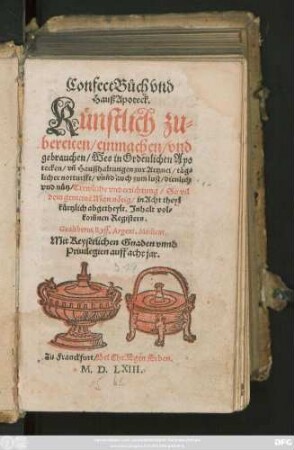 Confect Bůch vnd
Hauß Apoteck.
Künstlich zu-
bereiten / einmachen / vnd
gebrauchen / Wes in Ordenlichen Apo
tecken / vñ Haußhaltungen zur Artznei / täg-
licher notturfft / vnnd auch zum lust / dienlich
vnd nütz / Trewliche vnderrichtung /
dem gemeine Man / in Acht theyl
kürtzlich abgetheylt. Inhalt vol-
komnen Registern.
Gualtherus Ryff, Argent. Medicus.
Mit Keyserlichen Gnaden vnnd
Priuilegien auff acht jar.
Zu Franckfurt / Bei Chr. Egen. Erben.
M. D. LXIII.